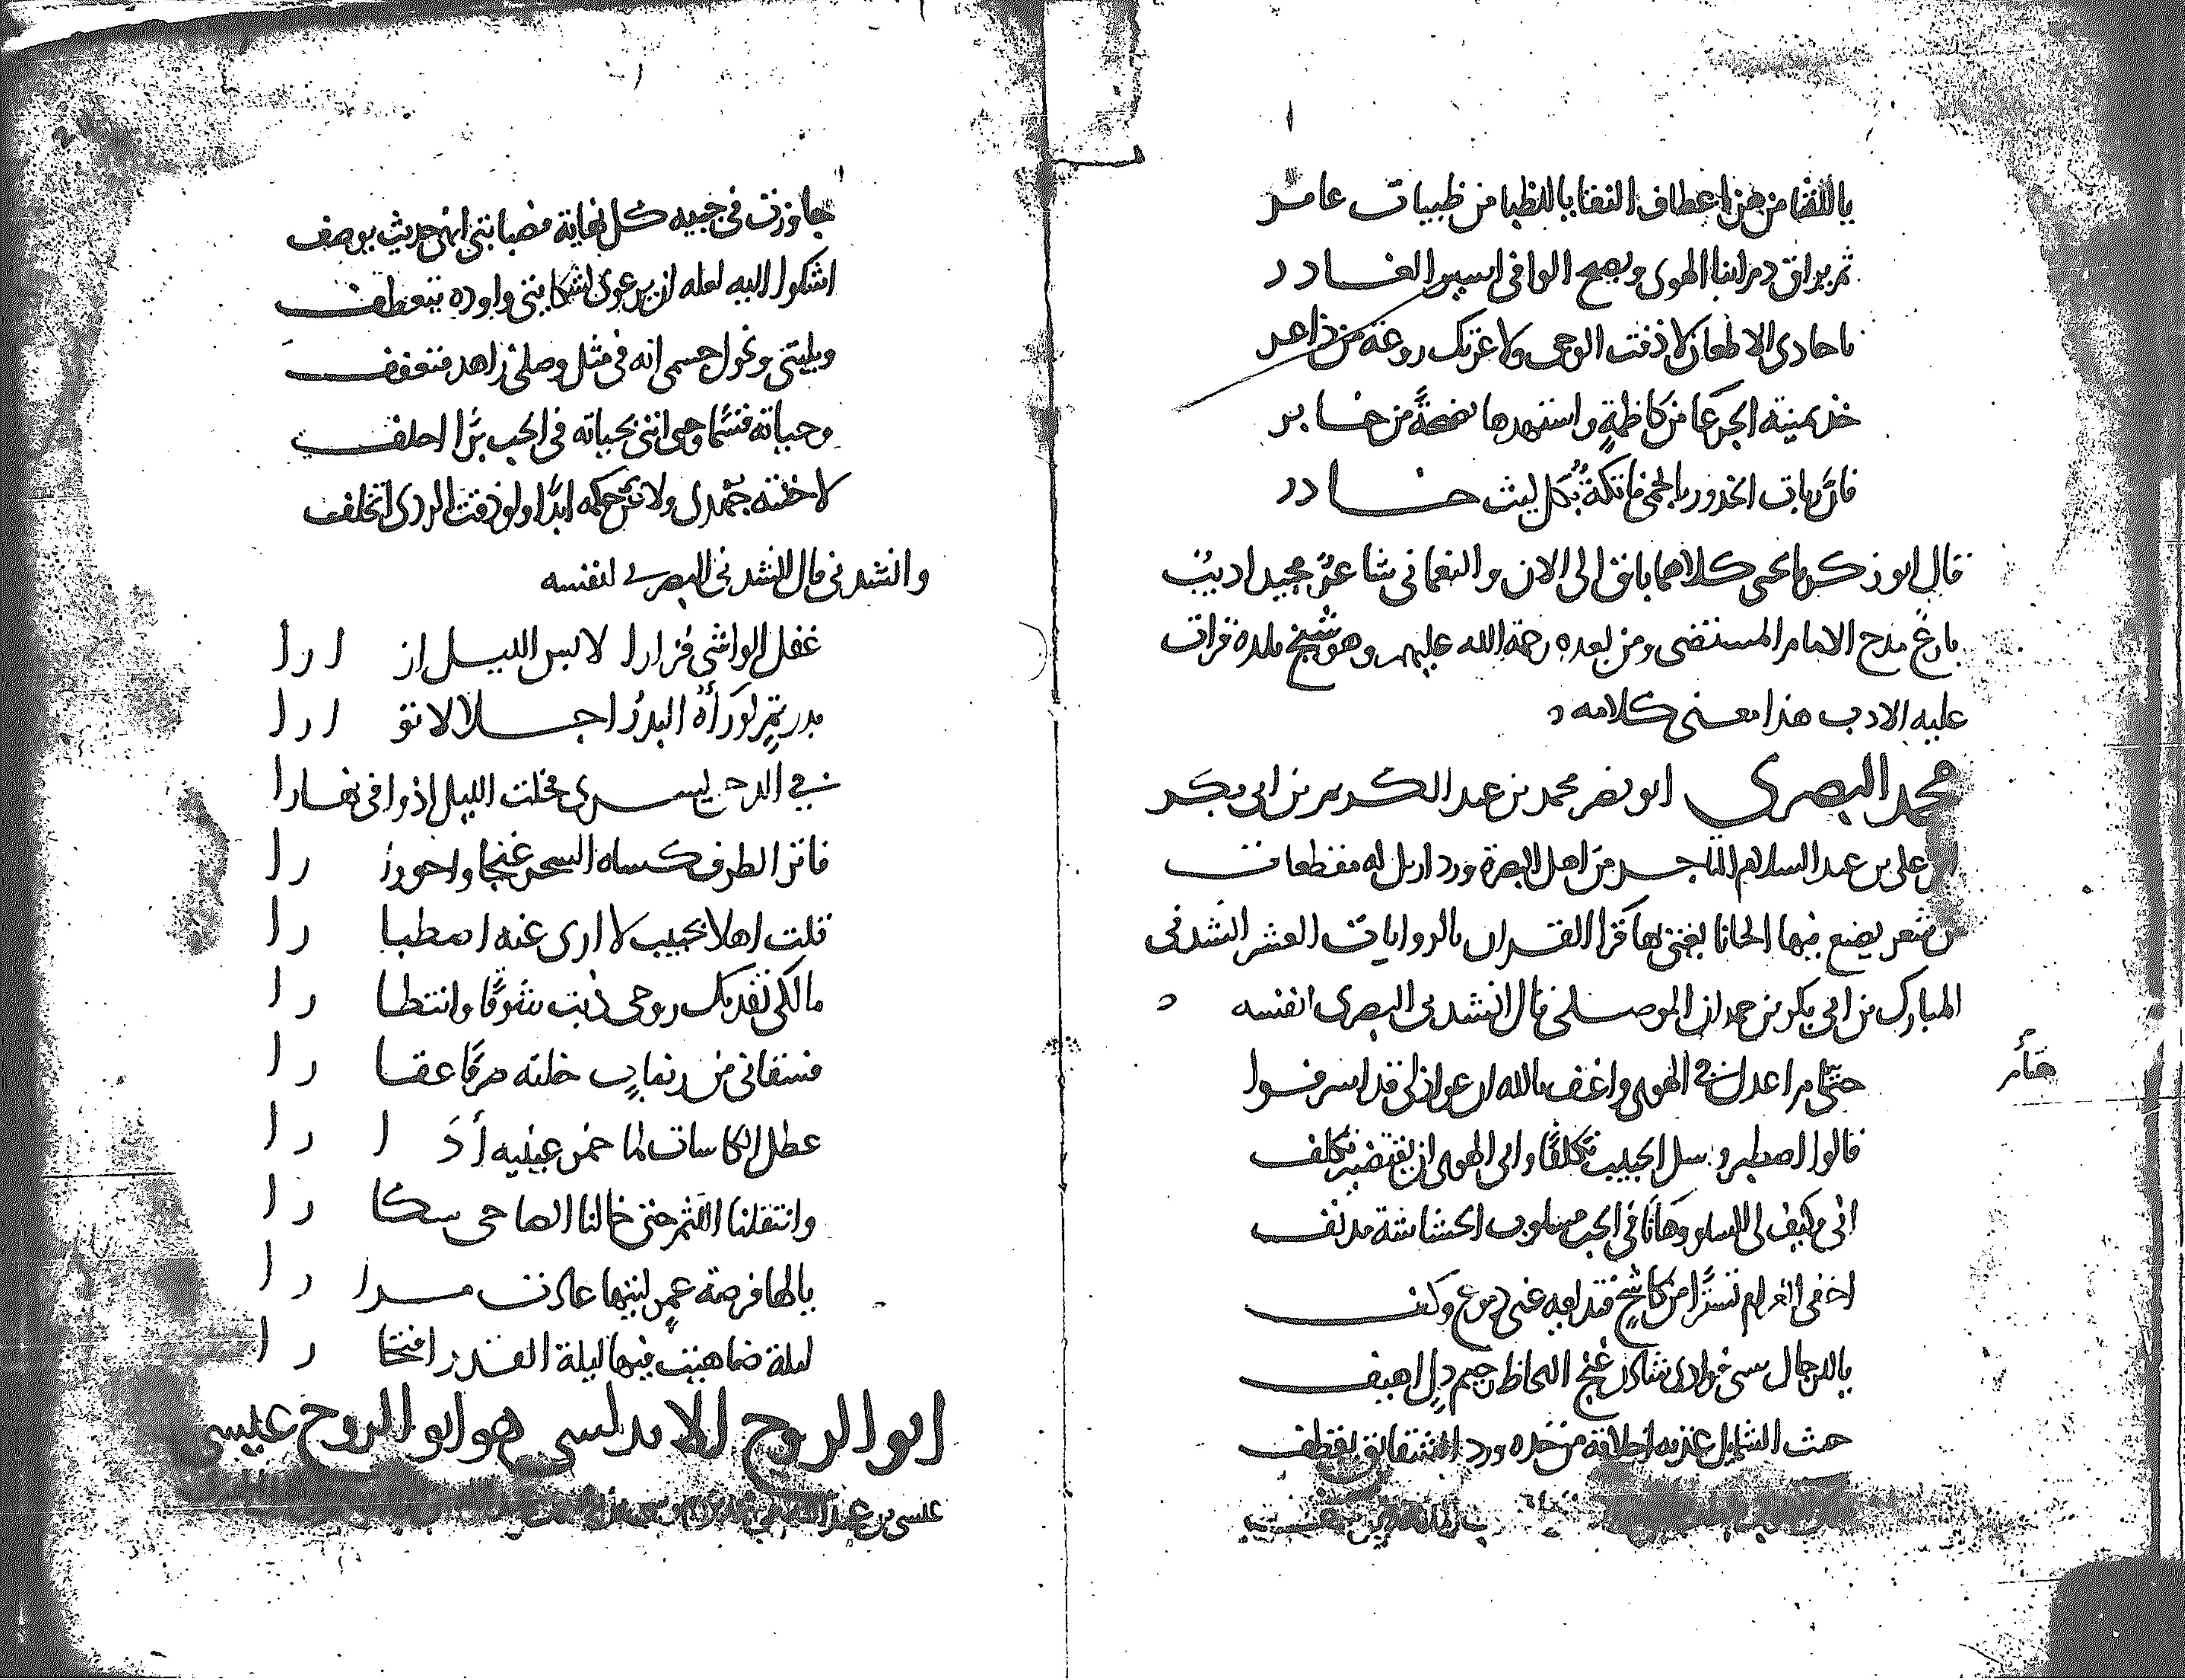 ياللقنا من هز اعطاف النقا ياللظبا من ظبيات عامر
ثم يراق دم ابنا الهوى ويصبح الوافى اسير الغادر
يا حادى الاظعان لا ذقت الوجى ولا عزتك روعة من ذاعر
خذ يمينة الجرعا من كاظمة واستهدها نفحة من خابر
فان ربات الخدور بالحمى فاتكة بكل ليث خادر
قال ابو زكريا يحيى كلاهما باق الى الان والنعمانى شاعر مجيد اديب
بارع مدح الامام المستضى ومن بعده رحمة الله عليهم وهو شيخ بلده قرات
عليه الادب هذا معنى كلامه
محمد البصرى ابو نصر محمد بن عبد الكريم بن ابى بكر
بن على بن عبد السلام التاجر من اهل البصرة ورد اربل له مقطعات
من شعر يضع فيها الحانا يغنى بها قرا القران بالروايات العشر انشدنى
المبارك بن ابى بكر بن حمدان الموصلى قال انشدنى البصرى لنفسه
حتام اعدل فى الهوى واعنف بالله ان عواذلى قد اسرفوا
قالوا اصطبر وسل الحبيب تكلفا وابى الهوى ان يقتضيه تكلف
انى وكيف لى السلو وهانا فى الحب مسلوب الحشاشة مدنف
اخفى الغرام تسترا من كاشح فتذيعه عنى دموع وكف
ياللرجال سبى فوادى شادن غنج اللحاظ رخيم دل اهيف
خنث الشمايل عذبه اخلاقه من خده ورد الشقايق يقطف
جاوزت فى حبيه كل نهاية فصبابتى انهى حديث يوصف
اشكوا اليه لعله ان يرعوى لشكايتى واوده يتعطف
وبليتى ونحول جسمى انه فى مثل وصلى زاهد متعفف
وحياته قسما وحى اننى بحياته فى الحب برا احلف
لا خنته جهدى ولا نمت حكمه ابدا ولو ذقت الردى اتخلف
وانشدنى قال انشدنى البصرى لنفسه
غفل الواشى فزارا لابس الليل ازارا
بدر تم لو رأه البدر اجلالا توارا
فى الدجى يسرى فخلت الليل اذ وافى نهارا
فاتر الطرف كساه السحر غنجا واحورارا
قلت اهلا بحبيب لا ارى عنه اصطبارا
مالكى تفديك روحى ذبت شوقا وانتظارا
فسقانى من رضاب خلته صرفا عقارا
عطل الكاسات لما خمر عينيه أدارا
وانتقلنا اللثم حتى خالنا الصاحى سكارا
يالها فرصة عمر ليتها عادت مرارا
ليلة ضاهيت فيها ليلة القدر افتخارا
ابو الروح الاندلسى هو ابو الروح عيسى
عيسى بن عبد الله